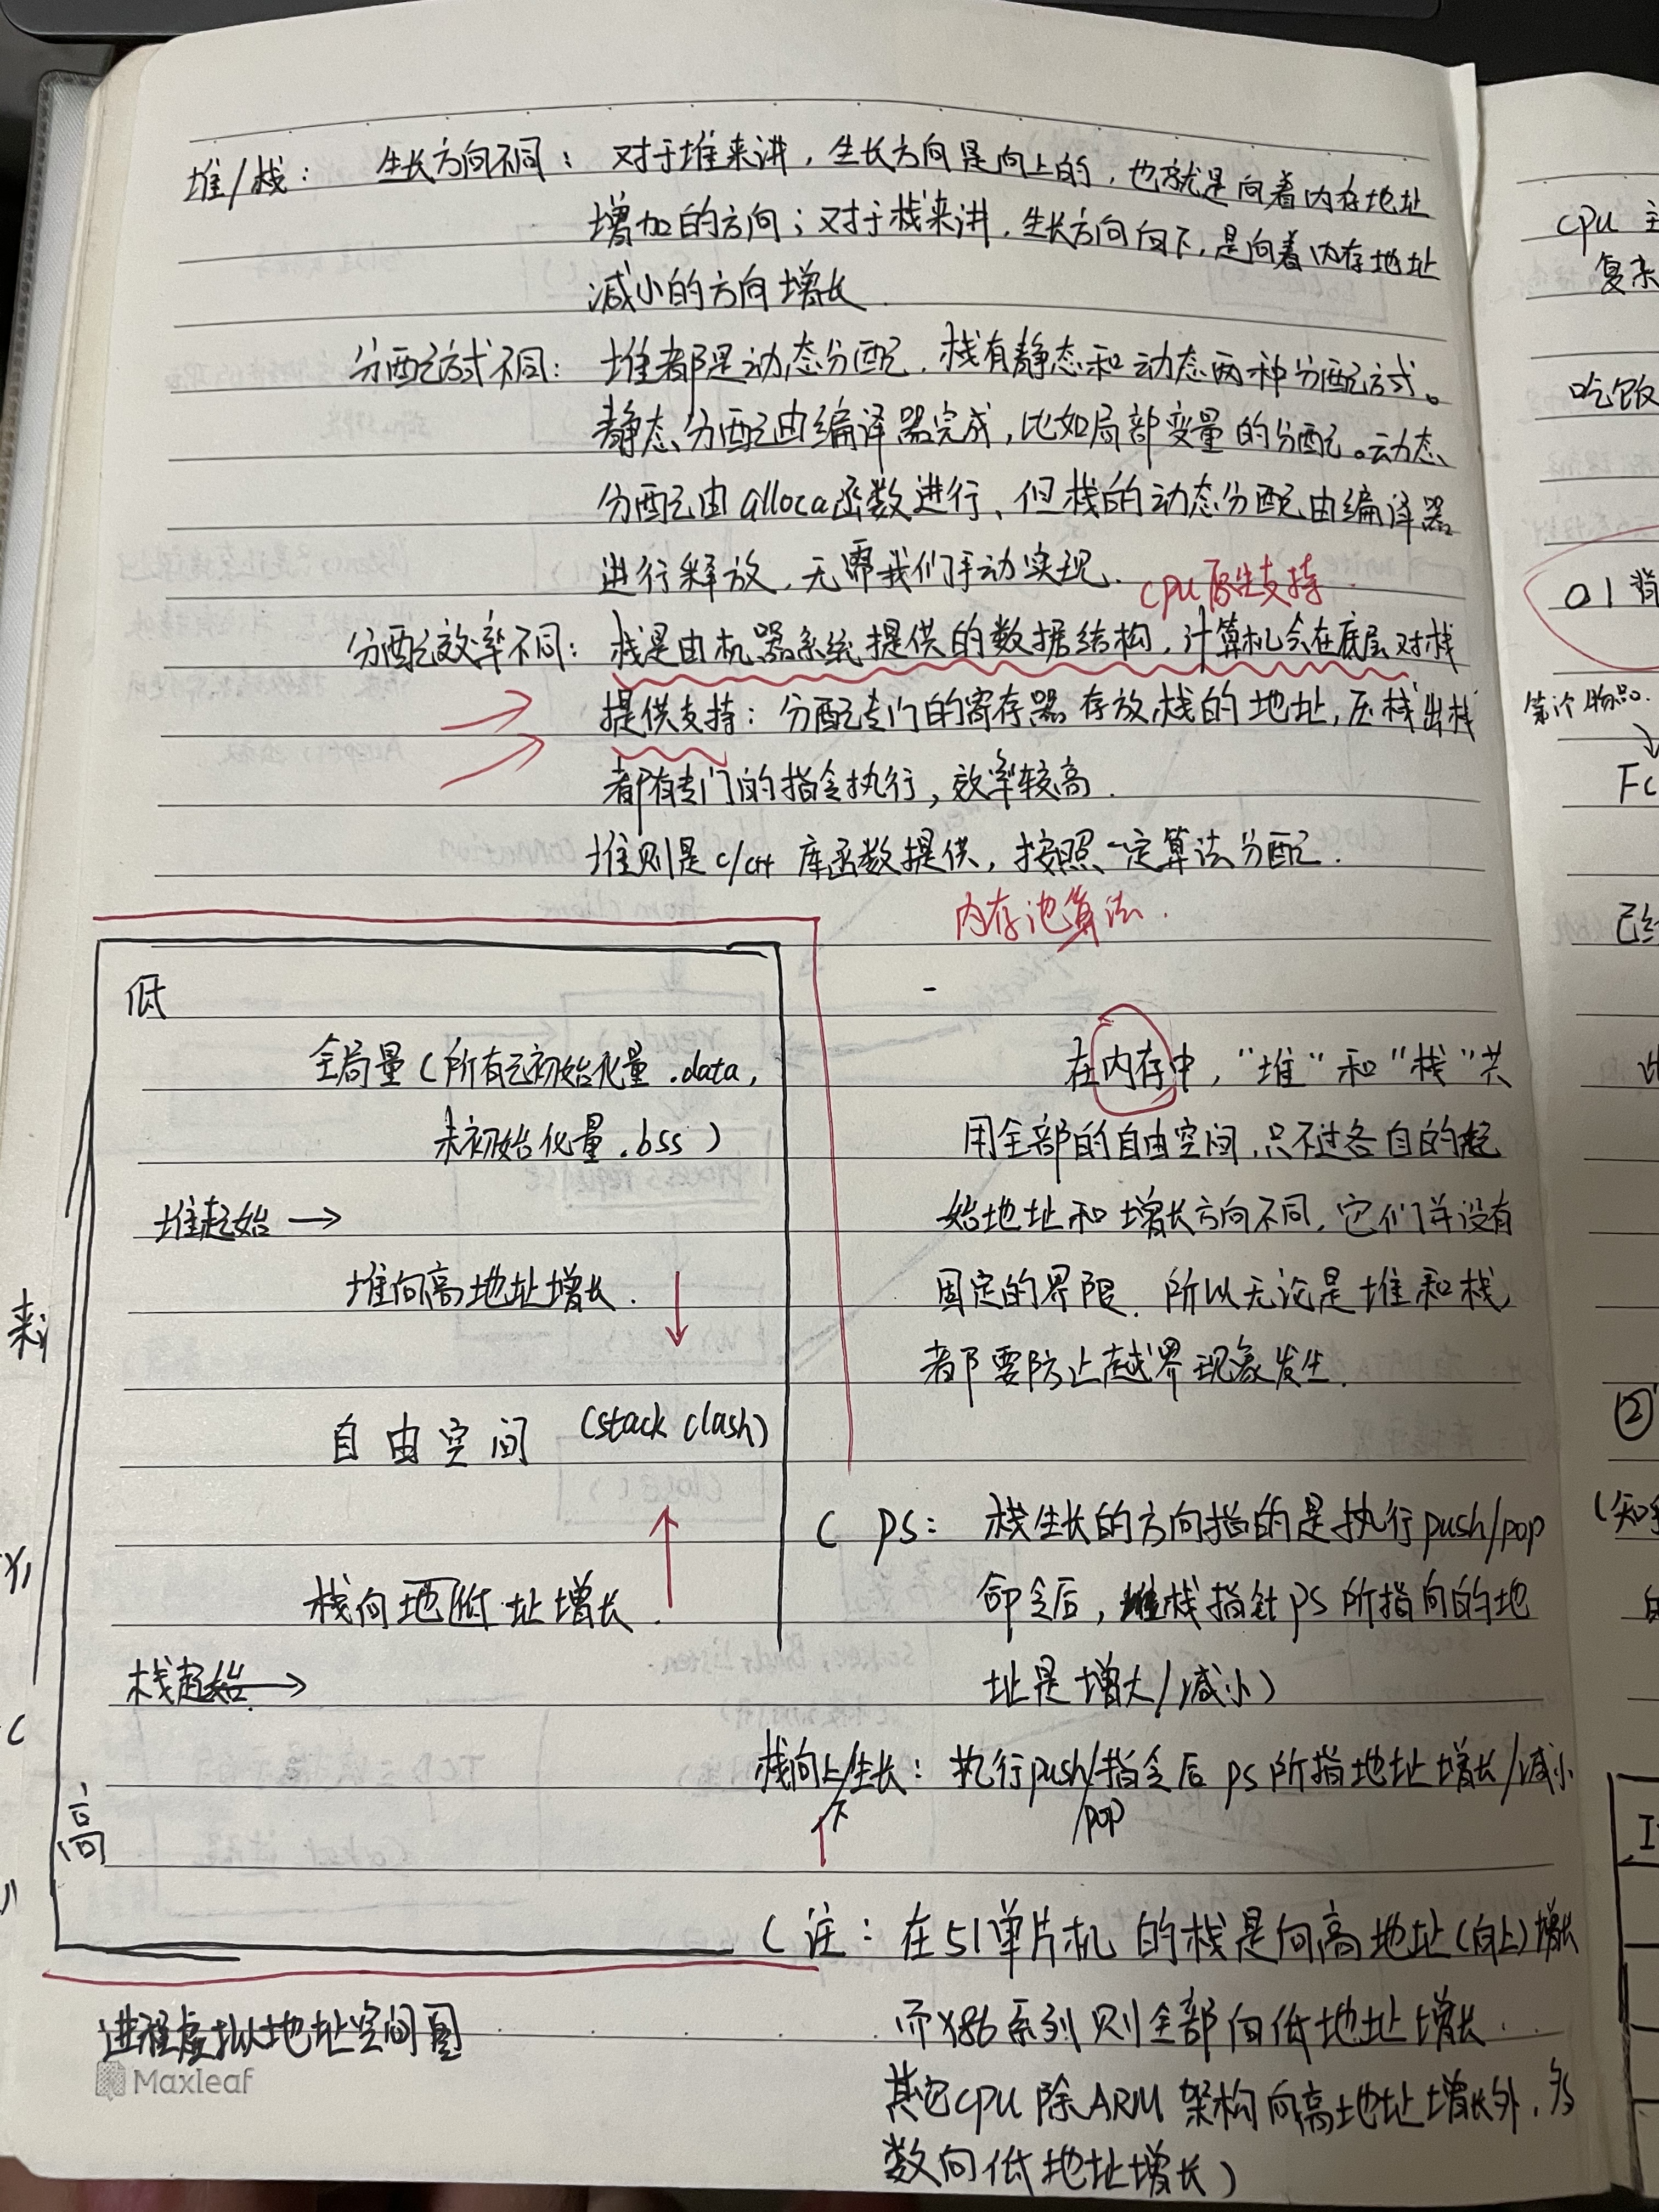 堆/栈： 生长方向不同： 对于堆来讲，生长方向是向上的，也就是向着内存地址
增加的方向；对于栈来讲，生长方向向下，是向着内存地址
减小的方向增长
分配方式不同： 堆都是动态分配，栈有静态和动态两种分配方式。
静态分配由编译器完成，比如局部变量的分配。动态
分配由alloca函数进行，但栈的动态分配由编译器
进行释放，无需我们手动实现.
cpu原生支持.
分配效率不同： 栈是由机器系统提供的数据结构，计算机会在底层对栈
提供支持：分配专门的寄存器存放栈的地址，压栈出栈
都有专门的指令执行，效率较高.
堆则是c/c++库函数提供，按照一定算法分配.
内存池算法.
低
全局量(所有已初始化量.data,
未初始化量.bss)
堆起始→
堆向高地址增长.
自由空间 (stack clash)
栈向地低址增长.
栈起始→
高
进程虚拟地址空间图
Maxleaf
在内存中，“堆”和“栈”共
用全部的自由空间，只不过各自的起
始地址和增长方向不同，它们并没有
固定的界限. 所以无论是堆和栈
都要防止越界现象发生.
(ps： 栈生长的方向指的是执行push/pop
命令后，栈指针ps所指向的地
址是增大/减小)
栈向上/下生长：执行push/pop指令后ps所指地址增长/减小
(注：在51单片机的栈是向高地址(向上)增长
而X86系列则全部向低地址增长.
其它CPU除ARM架构向高地址增长外，多
数向低地址增长)
cpu
复杂
吃饭
01背
第i个物品.
Fc
已经
②
(知乎